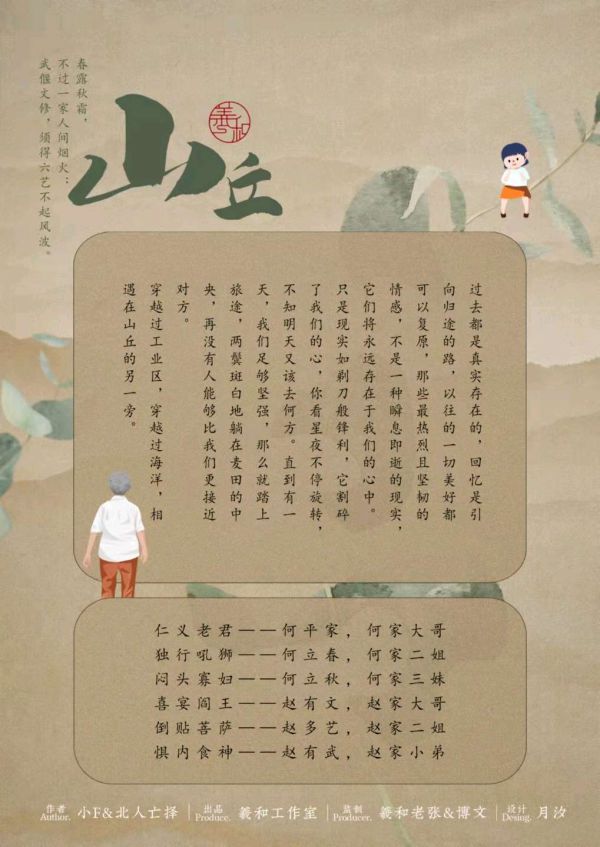 春露秋霜，
不过一家人间烟火；
武偃文修，须得六艺不起风波。
山丘
羲和
过去都是真实存在的，回忆是引
向归途的路，以往的一切美好都
可以复原，那些最热烈且坚韧的
情感，不是一种瞬息即逝的现实，
它们将永远存在于我们的心中。
只是现实如剃刀般锋利，它割碎
了我们的心，你看星夜不停旋转，
不知明天又该去何方。直到有一
天，我们足够坚强，那么就踏上
旅途，两鬓斑白地躺在麦田的中
央，再没有人能够比我们更接近
对方。
穿越过工业区，穿越过海洋，相
遇在山丘的另一旁。
仁义老君——何平家，何家大哥
独行吼狮——何立春，何家二姐
闷头寡妇——何立秋，何家三妹
喜宴阎王——赵有文，赵家大哥
倒贴菩萨——赵多艺，赵家二姐
惧内食神——赵有武，赵家小弟
作者 Author. 小F&北人亡择 | 出品 Produce. 羲和工作室 | 监制 Producer. 羲和老张&博文 | 设计 Desing. 月汐